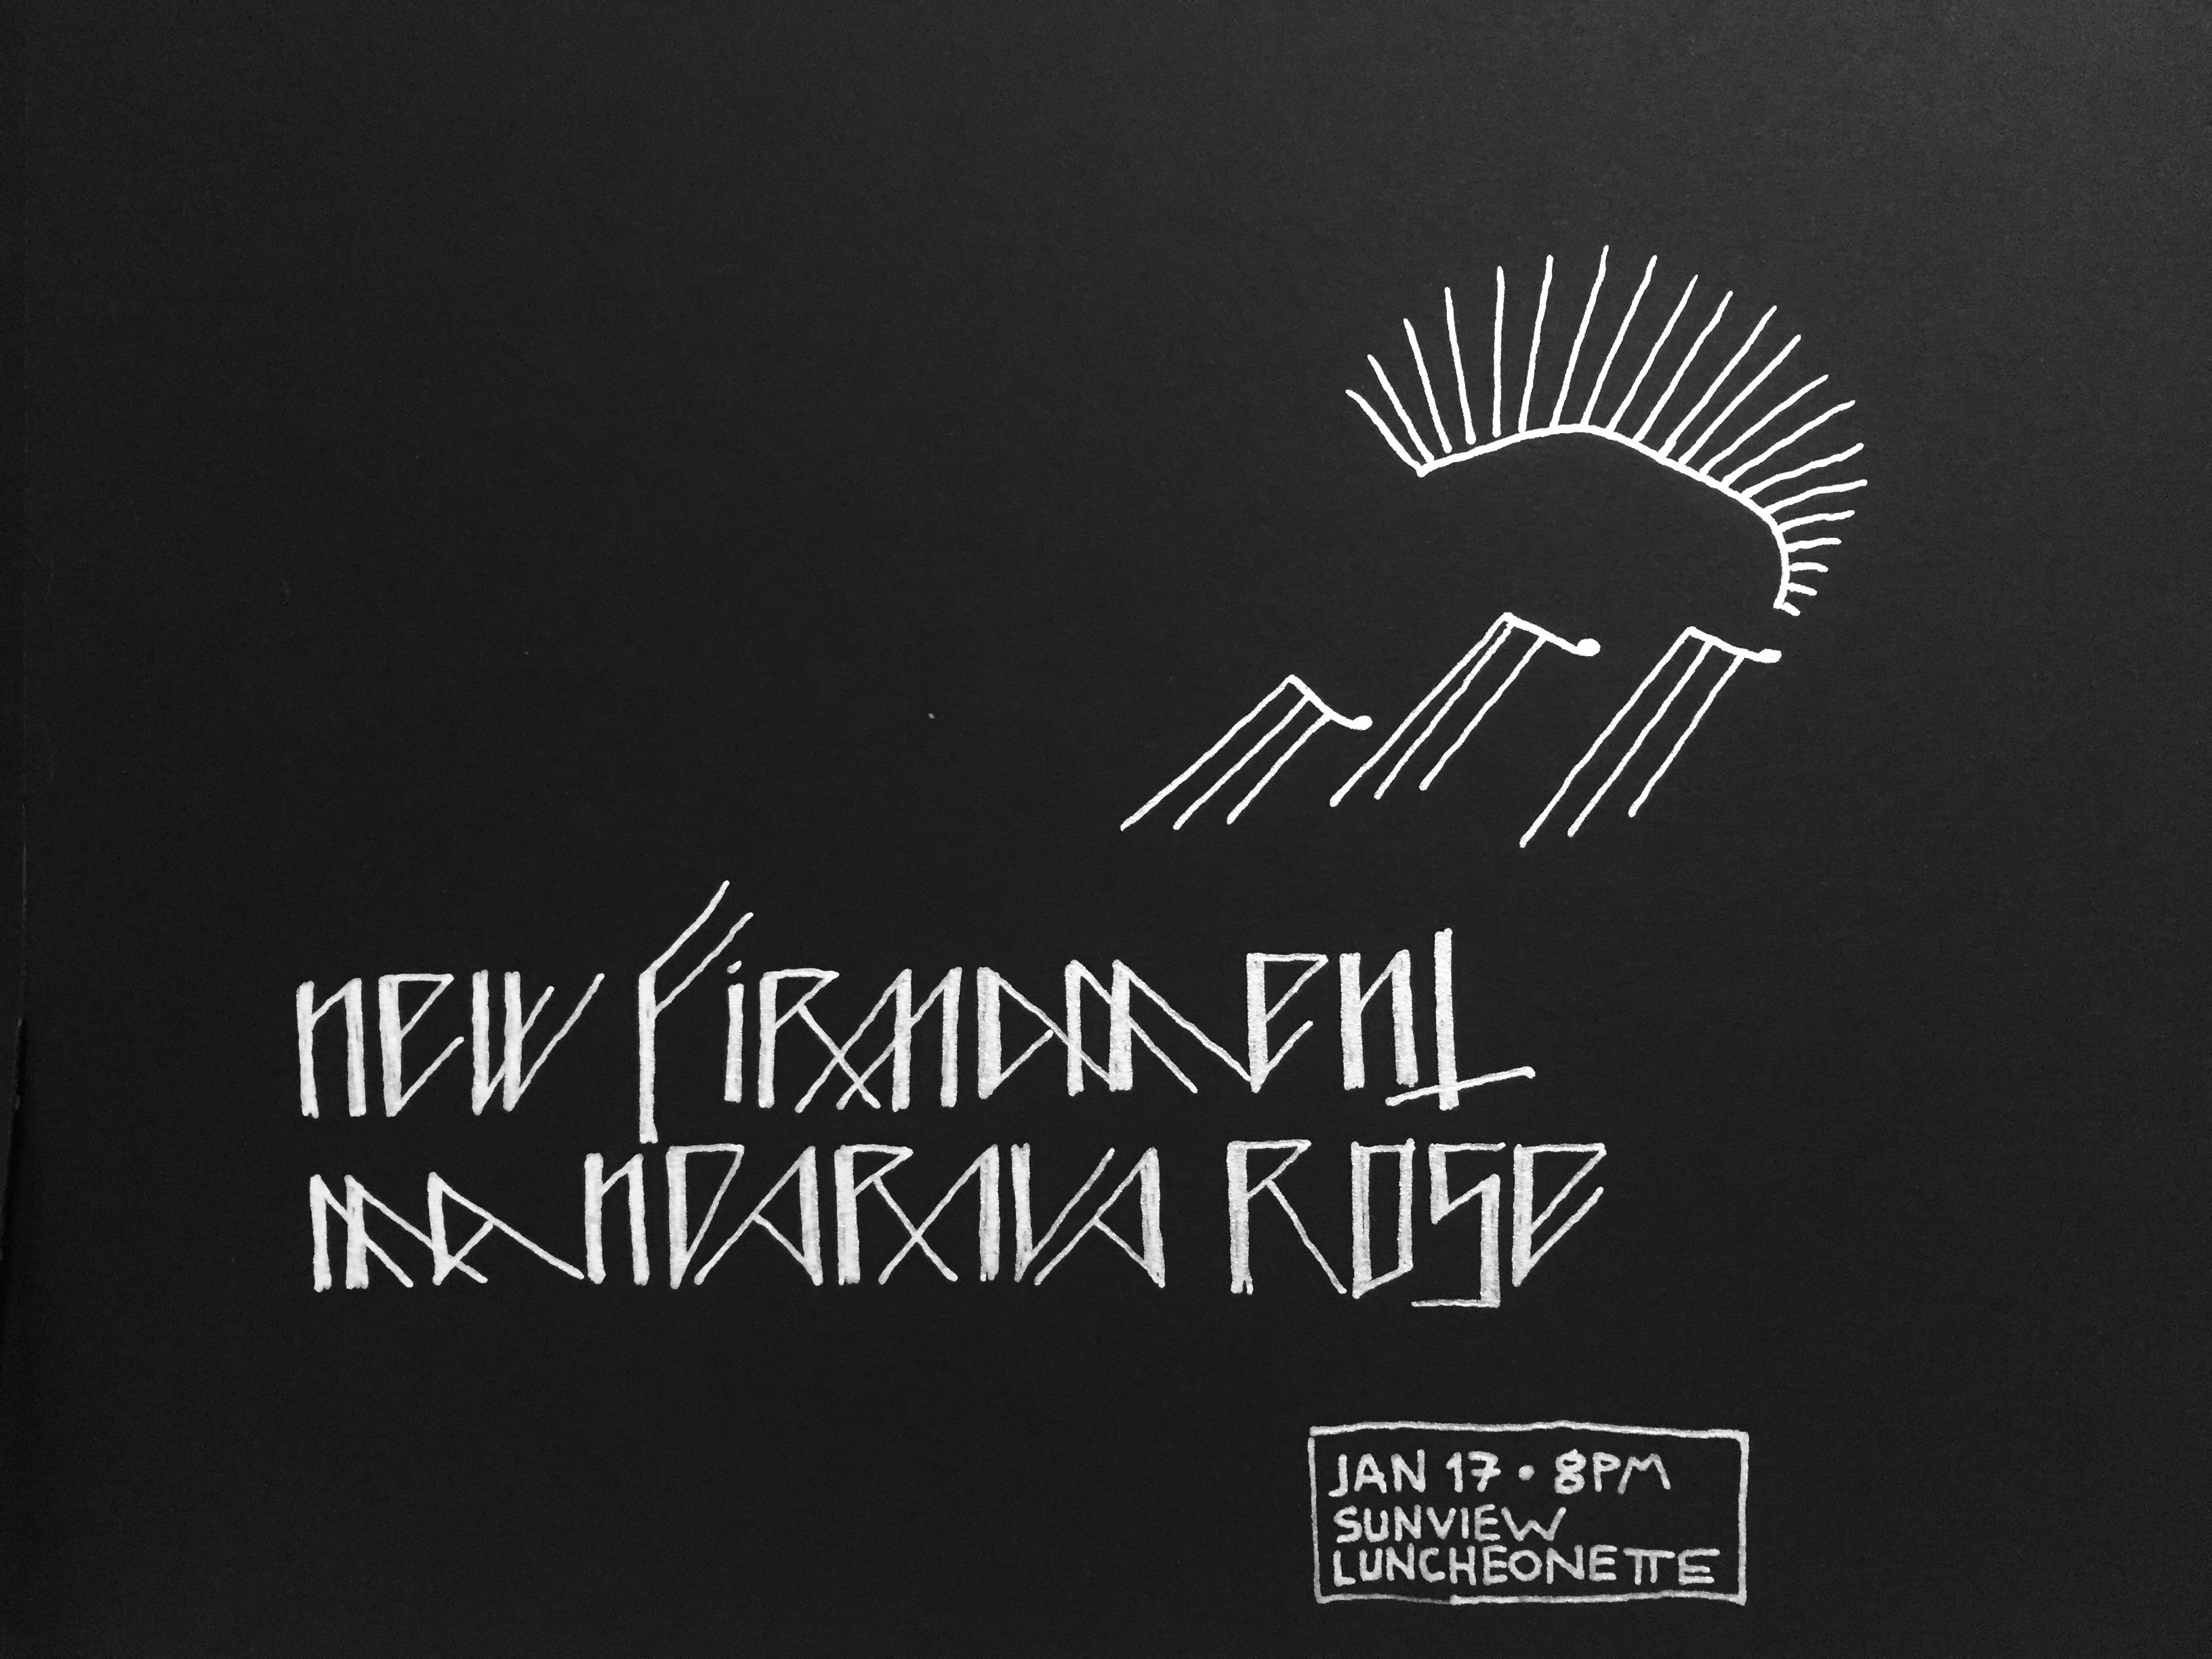 new firmament
mandarava rose
JAN 17 • 8PM
SUNVIEW
LUNCHEONETTE